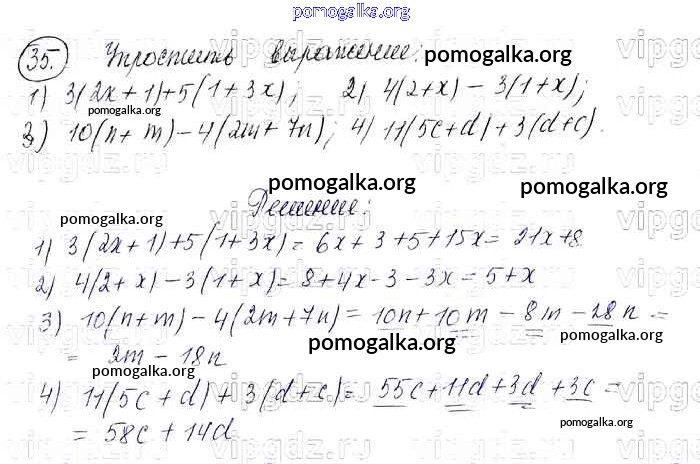 pomogalka.org
35. Упростить выражение: pomogalka.org
1) 3(2x+1)+5(1+3x); 2) 4(2+x)-3(1+x);
3) 10(n+m)-4(2m+7n); 4) 11(5c+d)+3(d+c).
pomogalka.org
Решение:
1) 3(2x+1)+5(1+3x)= 6x+3+5+15x= 21x+8
2) 4(2+x)-3(1+x)= 8+4x-3-3x=5+x
3) 10(n+m)-4(2m+7n)= 10n+10m-8m-28n=
= 2m-18n
pomogalka.org
4) 11(5c+d)+3(d+c)= 55c+11d+3d+3c=
= 58c+14d
pomogalka.org
vipgdz.ru